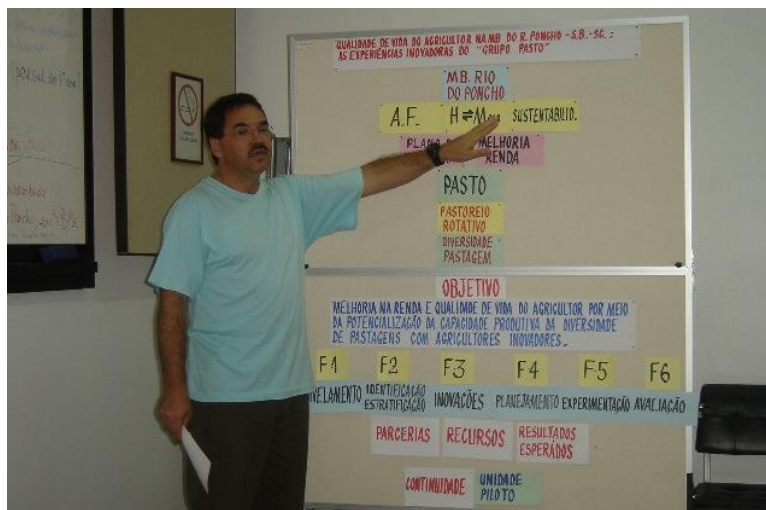 QUALIDADE DE VIDA DO AGRICULTOR NA MB DO R. PONCHO - S.B. - SC. :
AS EXPERIÊNCIAS INOVADORAS DO "GRUPO PASTO"
MB. RIO
DO PONCHO
A.F. H ⇌ M SUSTENTABILID.
MELHORIA
RENDA
PASTO
PASTOREIO
ROTATIVO
DIVERSIDADE
PASTAGEM
OBJETIVO
MELHORIA NA RENDA E QUALIDADE DE VIDA DO AGRICULTOR POR MEIO
DA POTENCIALIZAÇÃO DA CAPACIDADE PRODUTIVA DA DIVERSIDADE
DE PASTAGENS COM AGRICULTORES INOVADORES._
F1 F2 F3 F4 F5 F6
IDENTIFICAÇÃO
ESTRATIFICAÇÃO
INOVAÇÕES PLANEJAMENTO EXPERIMENTAÇÃO AVALIAÇÃO
PARCERIAS RECURSOS RESULTADOS
ESPERADOS
CONTINUIDADE UNIDADE
PILOTO